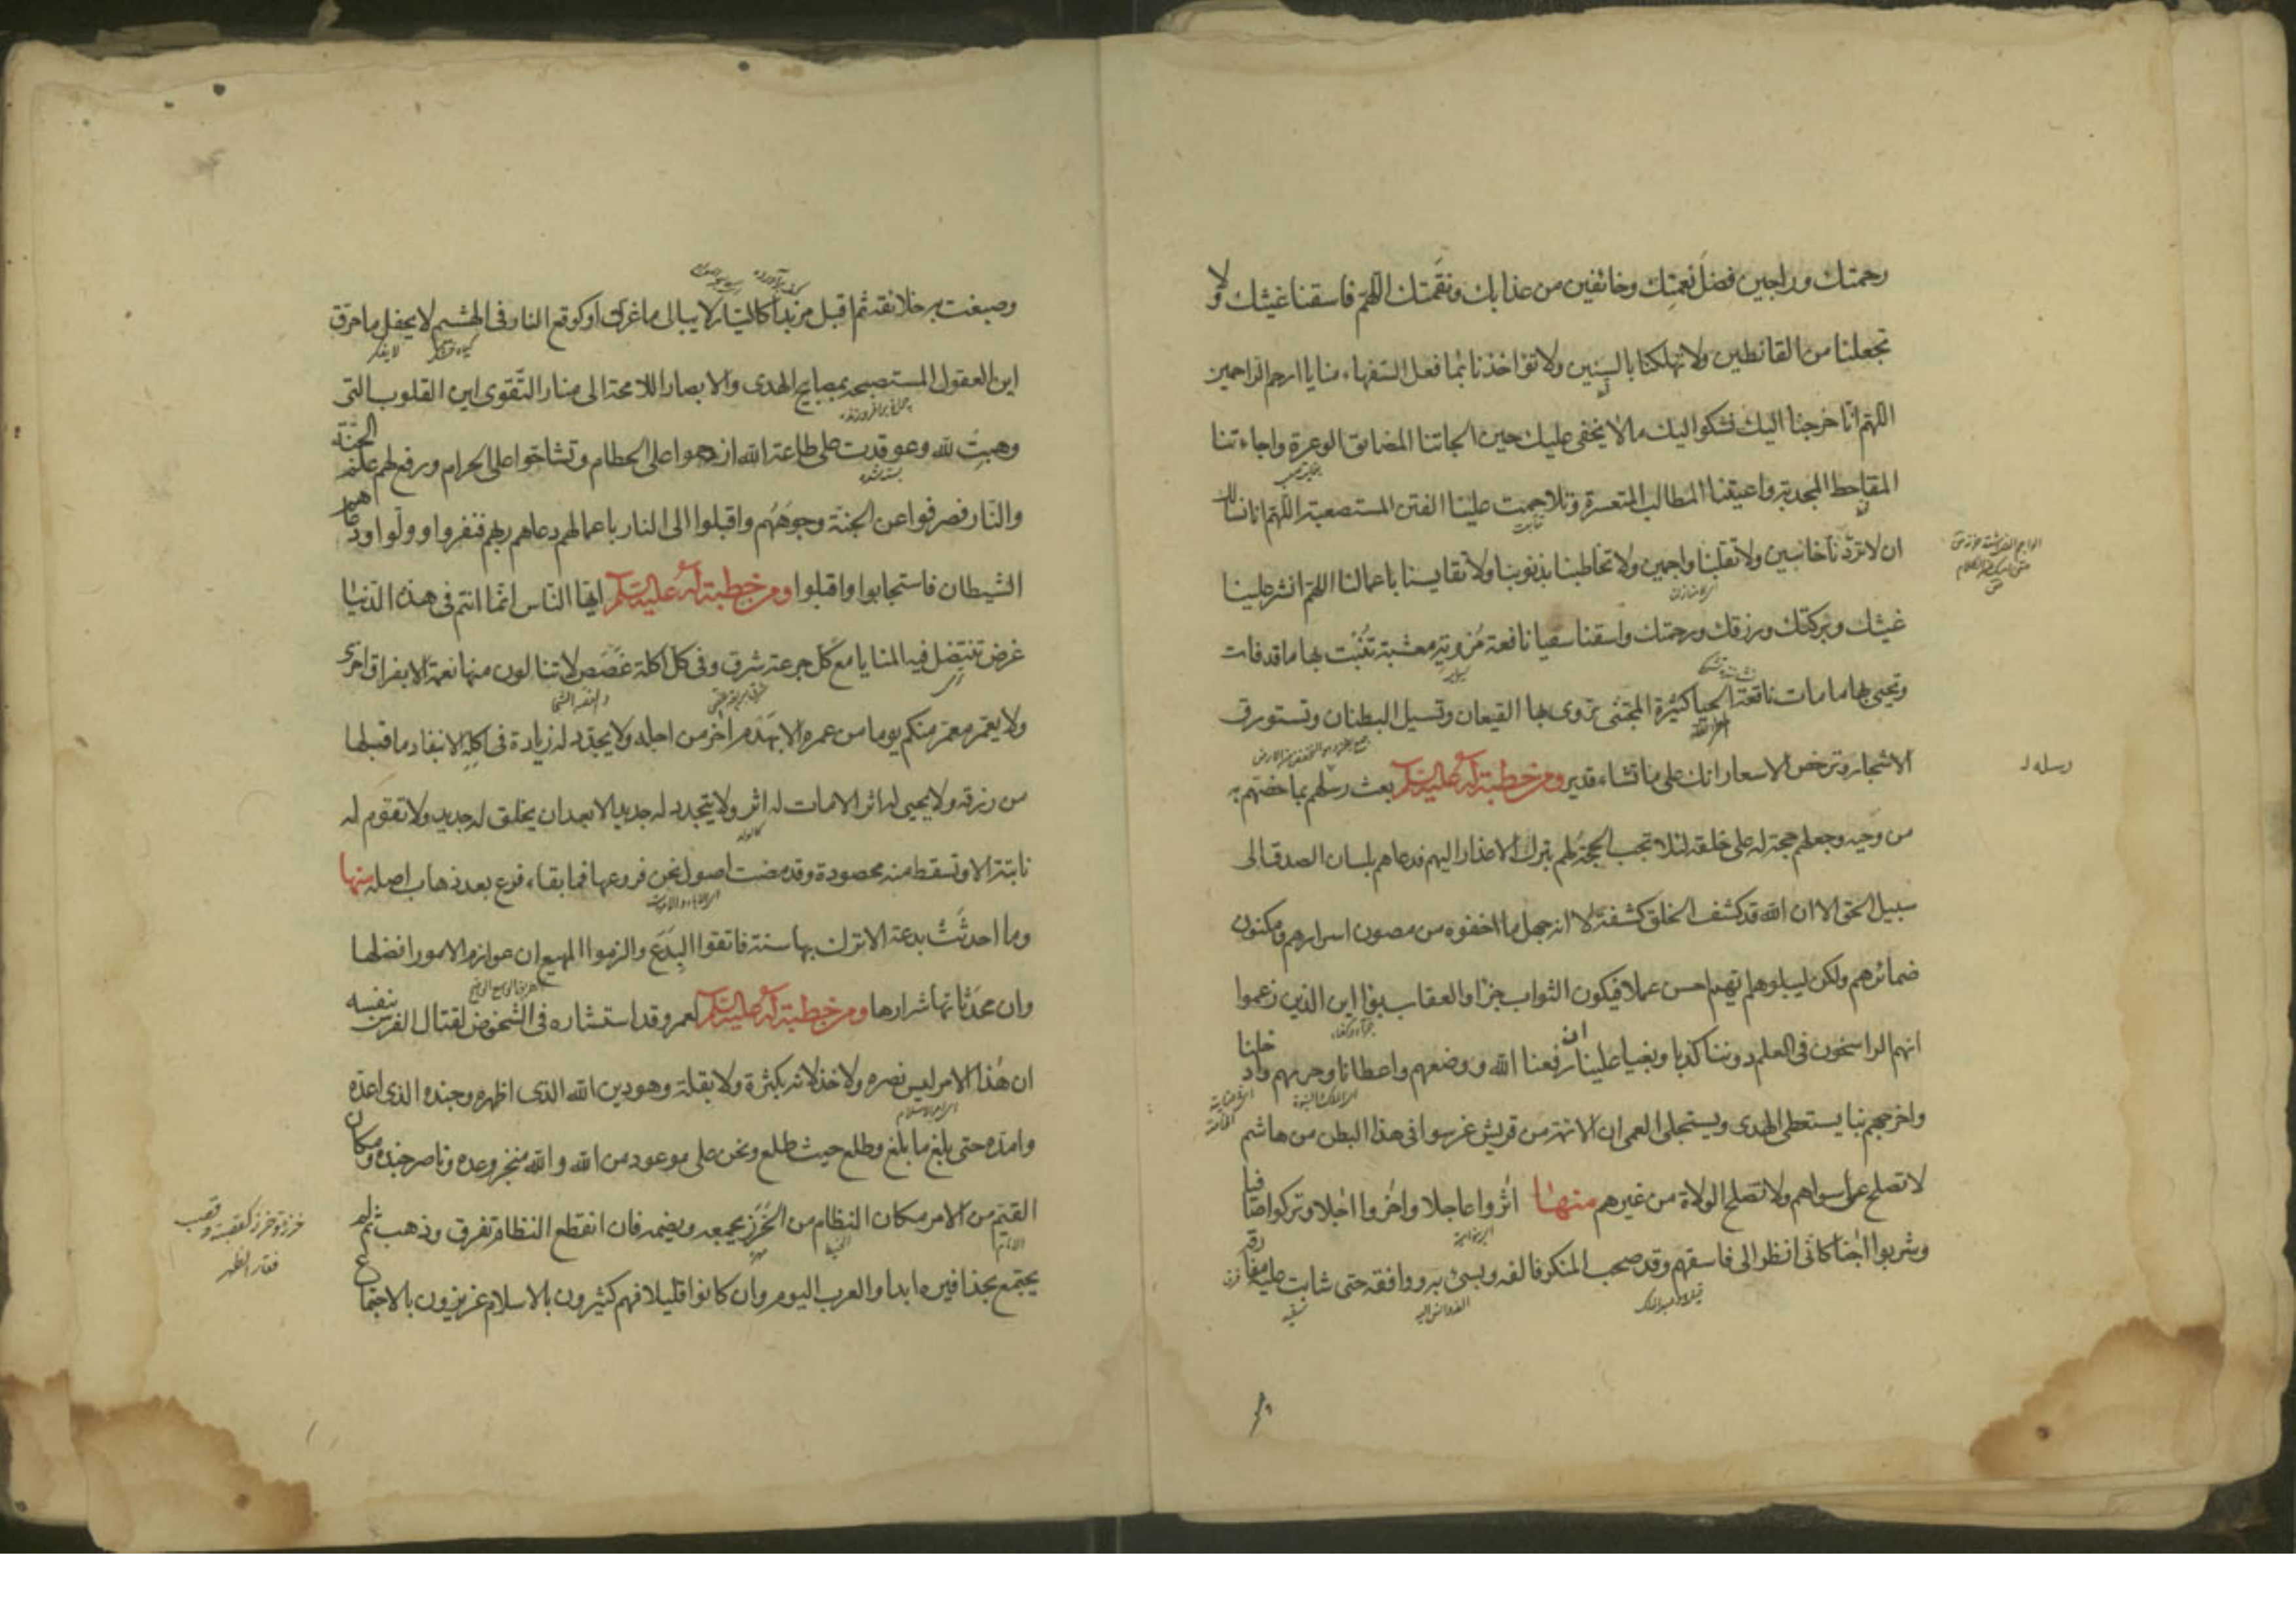 رحمتك وراجين فضل نعمتك وخائفين من عذابك ونقمتك اللهم فاسقنا غيثك ولا
تجعلنا من القانطين ولا تهلكنا بالسنين ولا تؤاخذنا بما فعل السفهاء منا يا ارحم الراحمين
اللهم انا خرجنا اليك نشكوا اليك ما لا يخفى عليك حين الجاتنا المضايق الوعرة واجاءتنا
المقاحط المجدبة واعيتنا المطالب المتعسرة وتلاحمت علينا الفتن المستصعبة اللهم انا نسالك
ان لا تردنا خائبين ولا تقلبنا واجمين ولا تخاطبنا بذنوبنا ولا تقايسنا باعمالنا اللهم انشر علينا
غيثك وبركتك ورزقك ورحمتك واسقنا سقيا نافعة مروية معشبة تنبت بها ما قد فات
وتحيي بها ما مات ناقعة الحيا كثيرة المجتنى تروى بها القيعان وتسيل البطنان وتستورق
الاشجار وترخص الاسعار انك على ما تشاء قدير ومن خطبة له عليه السلام بعث رسلهم بما خصهم به
من وحيه وجعلهم حجة له على خلقه لئلا تجب الحجة لهم بترك الاعذار اليهم فدعاهم بلسان الصدق الى
سبيل الحق الا ان الله قد كشف الخلق كشفة لا انه جهل ما اخفوه من مصون اسرارهم ومكنون
ضمائرهم ولكن ليبلوهم ايهم احسن عملا فيكون الثواب جزاء والعقاب بواء اين الذين زعموا
انهم الراسخون في العلم دوننا كذبا وبغيا علينا ان رفعنا الله ووضعهم واعطانا وحرمهم وادخلنا
واخرجهم بنا يستعطى الهدى ويستجلى العمى ان الائمة من قريش غرسوا في هذا البطن من هاشم
لا تصلح على سواهم ولا تصلح الولاة من غيرهم منها اثروا عاجلا واخروا اجلا وتركوا صافيا
وشربوا اجنا كاني انظر الى فاسقهم وقد صحب المنكر فالفه وبسئ به ووافقه حتى شابت عليه مفارقه
وصبغت به خلائقه ثم اقبل مزبدا كالتيار لا يبالى ما غرق او كوقع النار في الهشيم لا يحفل ما حرق
اين العقول المستصبحة بمصابيح الهدى والابصار اللامحة الى منار التقوى اين القلوب التي
وهبت لله وعوقدت على طاعة الله ازدحموا على الحطام وتشاحوا على الحرام ورفع لهم علم الجنة
والنار فصرفوا عن الجنة وجوههم واقبلوا الى النار باعمالهم دعاهم ربهم فنفروا وولوا ودعاهم
الشيطان فاستجابوا واقبلوا ومن خطبة له عليه السلام ايها الناس انما انتم في هذه الدنيا
غرض تنتضل فيه المنايا مع كل جرعة شرق وفي كل اكلة غصص لا تنالون منها نعمة الا بفراق اخرى
ولا يعمر معمر منكم يوما من عمره الا بهدم اخر من اجله ولا يجدد له زيادة في اكله الا بنفاد ما قبلها
من رزقه ولا يحيى له اثر الا مات له اثر ولا يتجدد له جديد الا بعد ان يخلق له جديد ولا تقوم له
نابتة الا وتسقط منه محصودة وقد مضت اصول نحن فروعها فما بقاء فرع بعد ذهاب اصله منها
وما احدثت بدعة الا ترك بها سنة فاتقوا البدع والزموا المهيع ان عوازم الامور افضلها
وان محدثاتها شرارها ومن خطبة له عليه السلام لعمر وقد استشاره في الشخوص لقتال الفرس بنفسه
ان هذا الامر ليس نصره ولا خذلانه بكثرة ولا بقلة وهو دين الله الذي اظهره وجنده الذي اعده
وامده حتى بلغ ما بلغ وطلع حيث طلع ونحن على موعود من الله والله منجز وعده وناصر جنده ومكان
القيم من الامر مكان النظام من الخرز يجمعه ويضمه فان انقطع النظام تفرق وذهب ثم لم
يجتمع بحذافيره ابدا والعرب اليوم وان كانوا قليلا فهم كثيرون بالاسلام عزيزون بالاجتماع